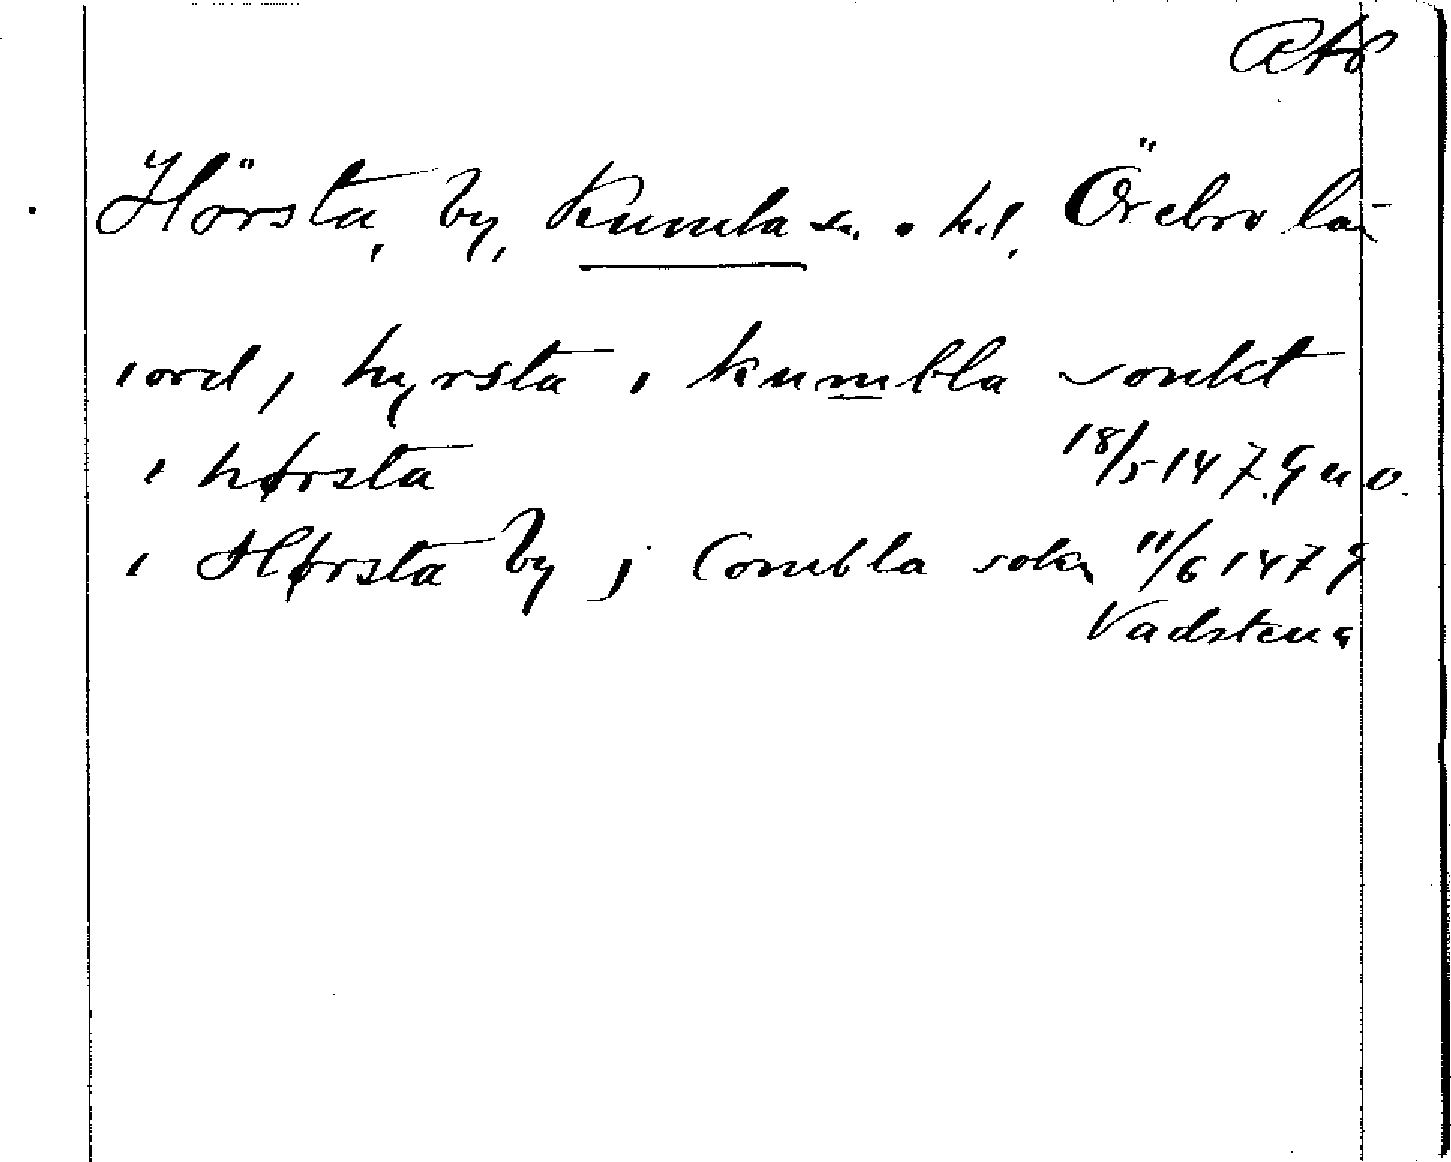 RAP
Hörsta, by, Kumla sn. o. hd, Örebro län
iord i hyrsta i kumbla sonkt
i hørsta 18/5 1479 u.o.
i Hørsta by j Combla sokn 11/6 1479
Vadstena